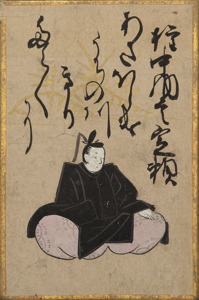 権中納言定頼
あさほらけ
うちの川
きり
たえ〳〵に